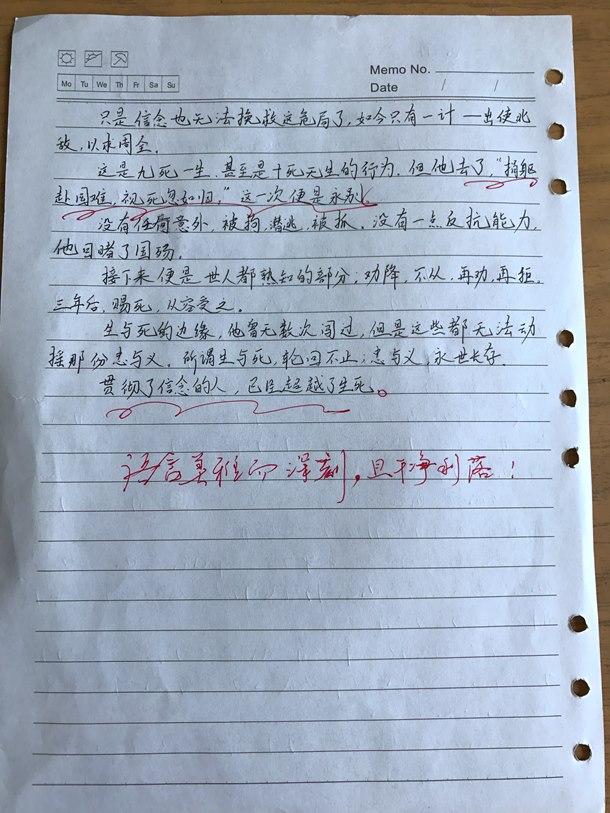 Memo No.
Mo Tu We Th Fr Sa Su
Date / /
只是信念也无法挽救这危局了，如今只有一计——出使北
敌，以求周全。
这是九死一生，甚至是十死无生的行为，但他去了，“捐躯
赴国难，视死忽如归，”这一次便是永别
没有任何意外，被拘，潜逃，被抓，没有一点反抗能力，
他目睹了国殇。
接下来便是世人都熟知的部分；劝降，不从，再劝，再拒，
三年后，赐死，从容受之。
生与死的边缘，他曾无数次闯过，但是这些都无法动
摇那份忠与义。所谓生与死，轮回不止；忠与义，永世长存。
贯彻了信念的人，已臣超越了生死。
语言美雅而深刻，且干净利落！